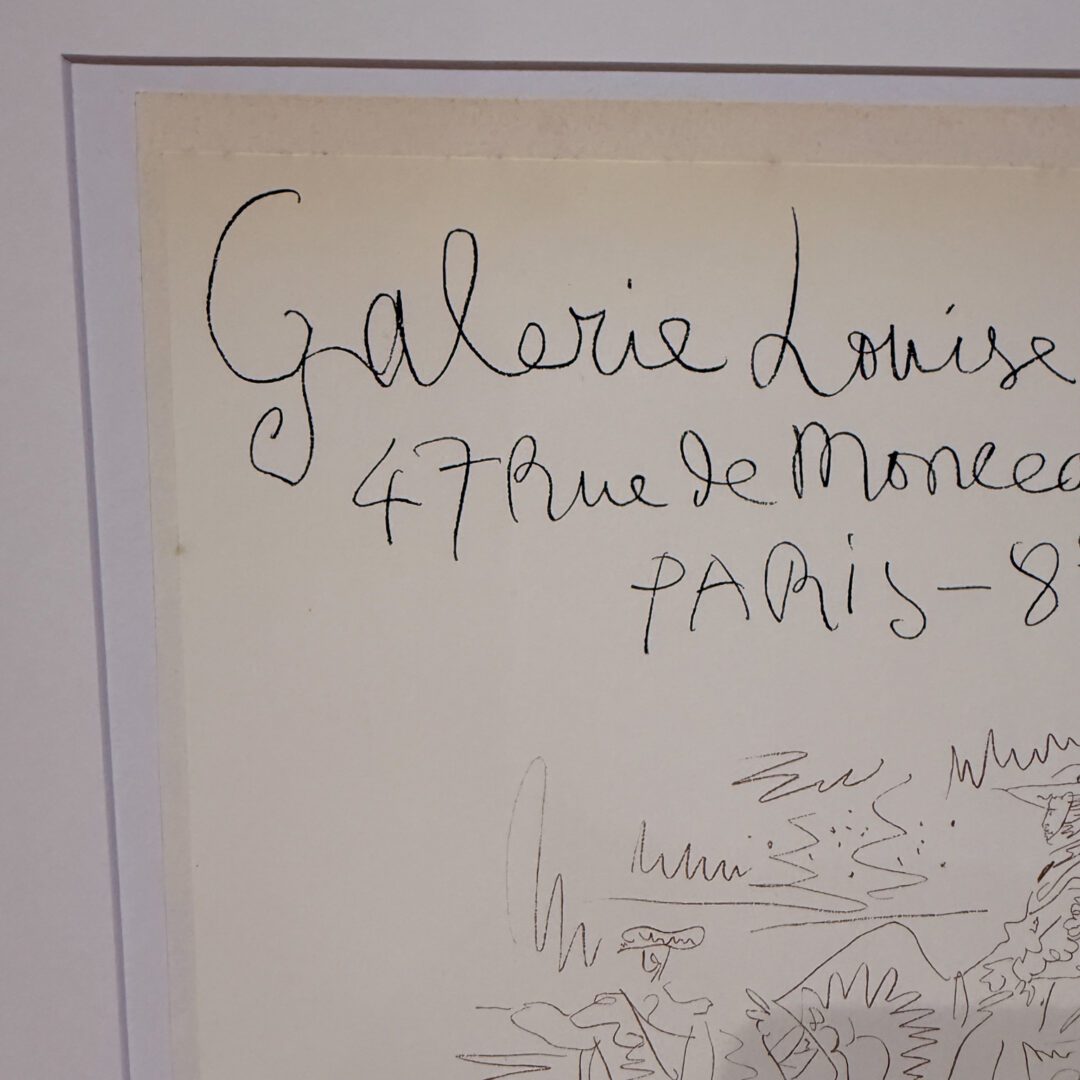 Galerie Louise
47 Rue de Moncea
PARIS - 8